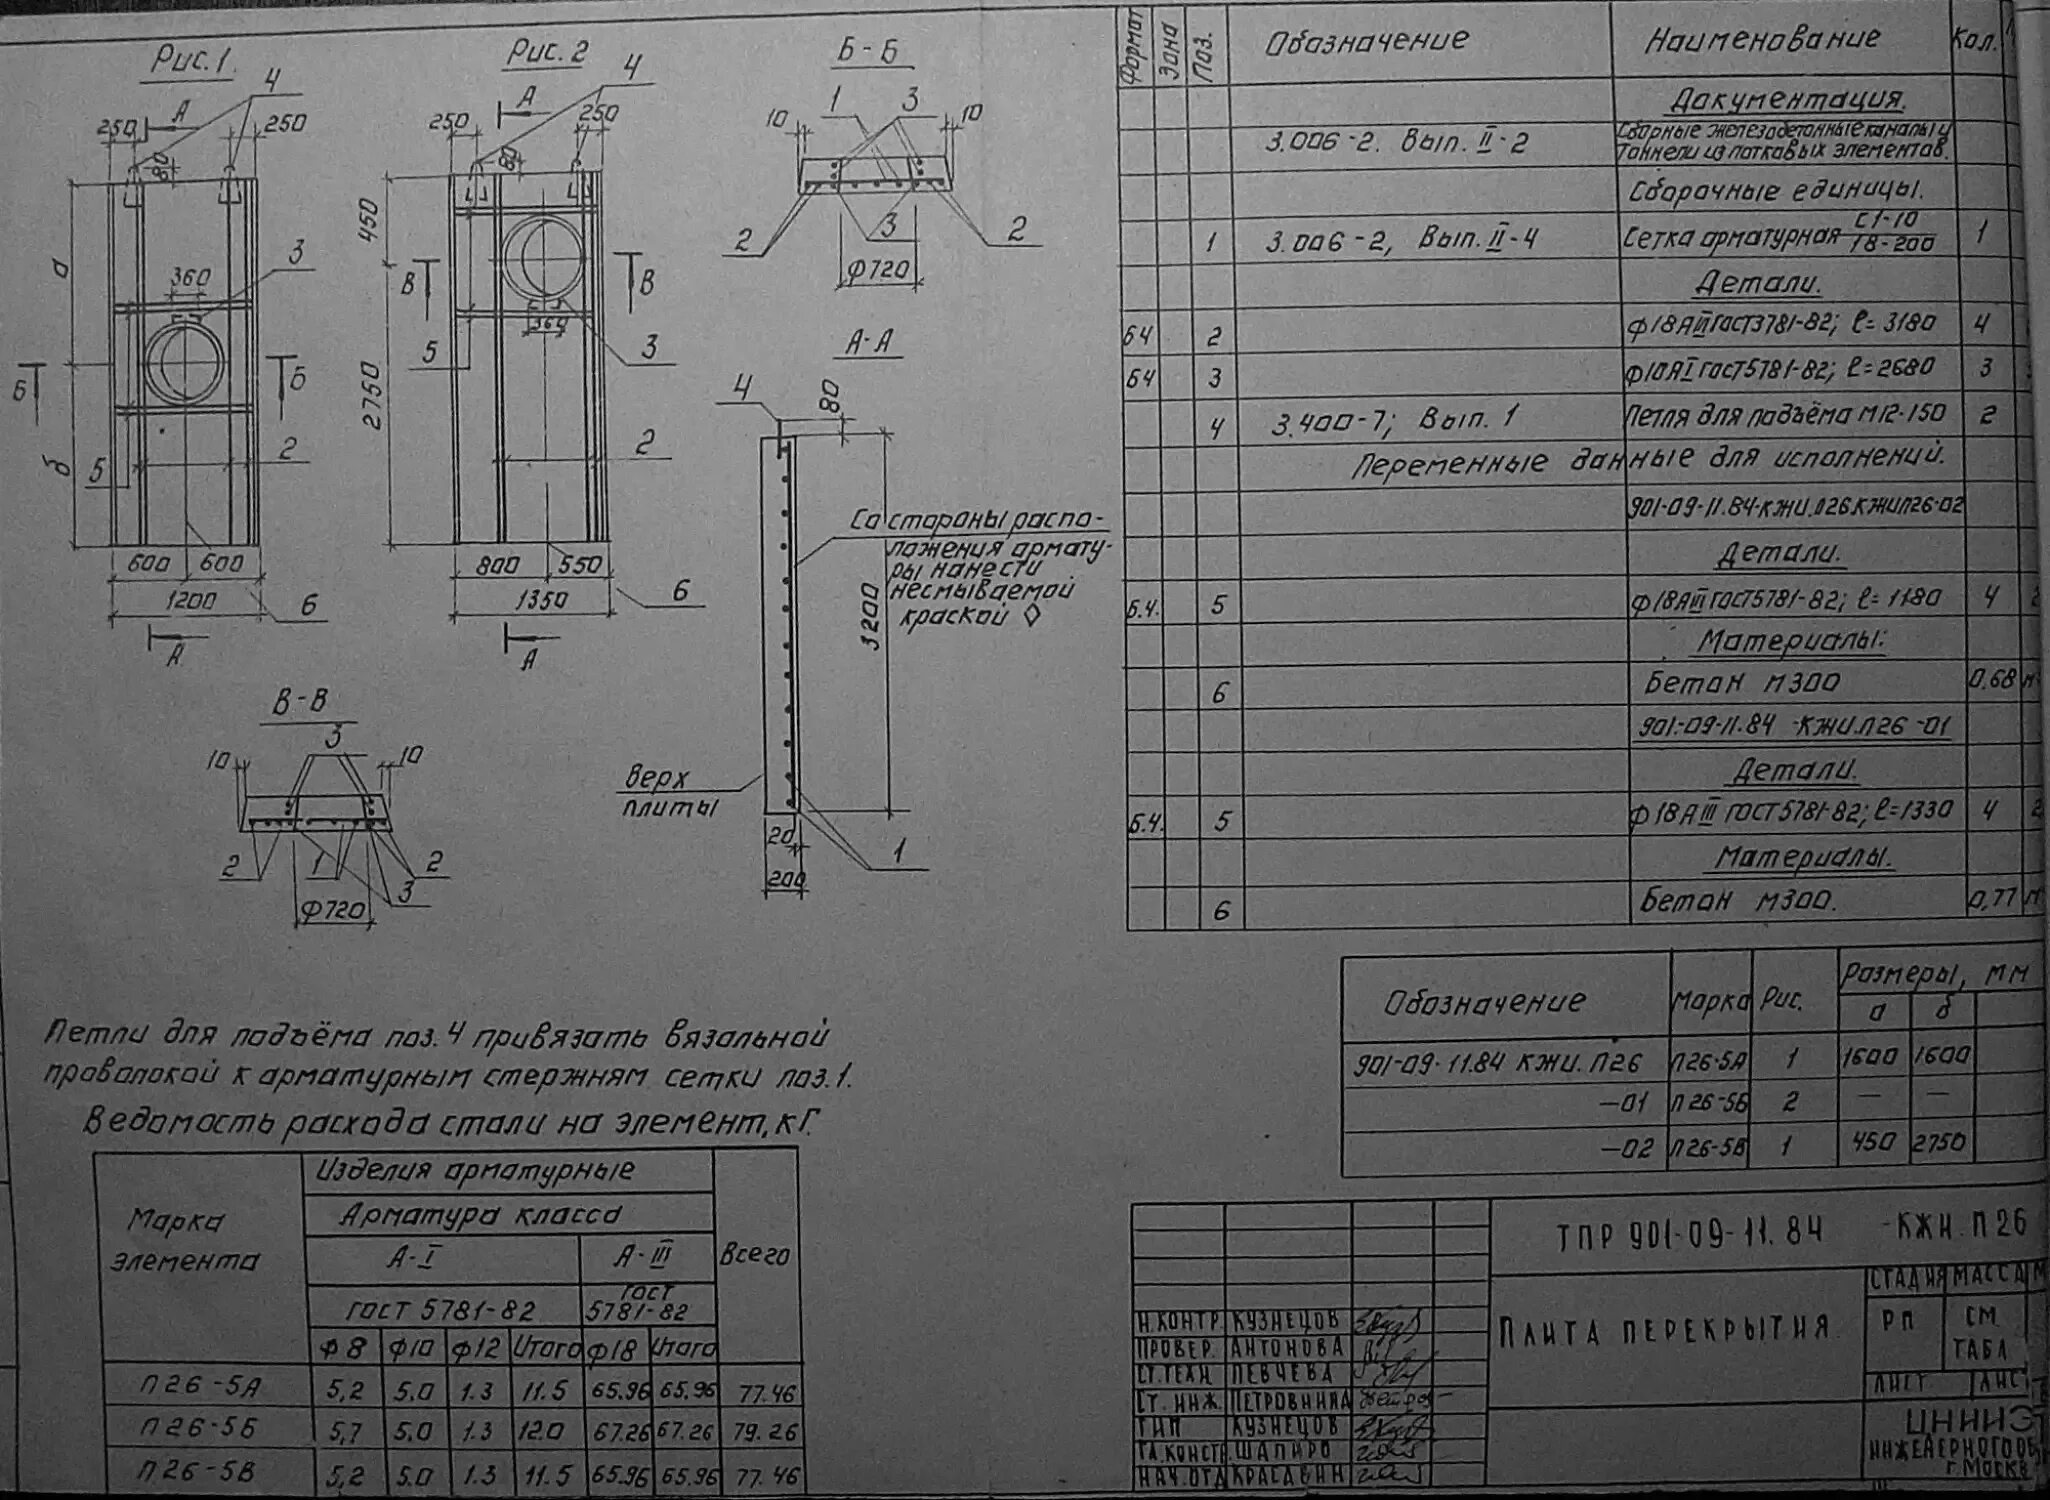 Рис.1.
4
А
250
250
80
а
3
360
Б
Б
б
5
2
600
600
1200
6
А
Рис. 2
4
А
250
250
80
450
В
В
360
5
3
2750
2
800
550
1350
6
А
Б-Б
10
1
3
10
2
3
2
ф720
А-А
4
80
Со стороны распо-
ложения армату-
ры нанести
несмываемой
краской ◊
3200
верх
плиты
20
200
1
В-В
10
3
10
2
1
3
2
ф720
Петли для подъёма поз. 4 привязать вязальной
проволокой к арматурным стержням сетки поз.1.
Ведомость расхода стали на элемент, кг.
Марка элемента
Изделия арматурные
Всего
Арматура класса
А-I
А-III
ГОСТ 5781-82
ГОСТ 5781-82
ф8 ф10 ф12 Итого ф18 Итого
П26-5А 5,2 5.0 1.3 11.5 65.96 65.96 77.46
П26-5Б 5,7 5.0 1.3 12.0 67.26 67.26 79.26
П26-5В 5,2 5.0 1.3 11.5 65.96 65.96 77.46
Формат Зона Поз. Обозначение Наименование Кол.
Документация.
3.006-2. Вып. II-2 Сборные железобетонные каналы и
тоннели из лотковых элементов.
Сборочные единицы.
1 3.006-2, Вып. II-4 Сетка арматурная С1-10/18-200 1
Детали.
БЧ 2 ф18АIIIГОСТ3781-82; ℓ=3180 4
БЧ 3 ф10АI ГОСТ5781-82; ℓ=2680 3
4 3.400-7; Вып. 1 Петля для подъёма М12-150 2
Переменные данные для исполнений.
901-09-11.84-КЖИ.П26,КЖИП26-02
Детали.
Б.Ч. 5 ф18АIII ГОСТ5781-82; ℓ=1180 4
Материалы:
6 Бетон М300 0.68
901-09-11.84 -КЖИ.П26 -01
Детали.
Б.Ч. 5 ф18АIII ГОСТ5781-82; ℓ=1330 4
Материалы.
6 Бетон М300. 0,77
Обозначение Марка Рис. Размеры, мм
а б
901-09-11.84 КЖИ. П26 П26-5А 1 1600 1600
—01 П26-5Б 2 — —
—02 П26-5В 1 450 2750
ТПР 901-09-11.84 -КЖИ.П26
Плита перекрытия
СТАДИЯ МАССА
РП СМ. ТАБЛ
ЛИСТ
Н.КОНТР. КУЗНЕЦОВ
ПРОВЕР. АНТОНОВА
СТ.ТЕХН. ПЕВЧЕВА
СТ. ИНЖ.
ГИП КУЗНЕЦОВ
ГЛ.КОНСТР. ШАПИРО
НАЧ.ОТД КРАСАВИН
г. Москва